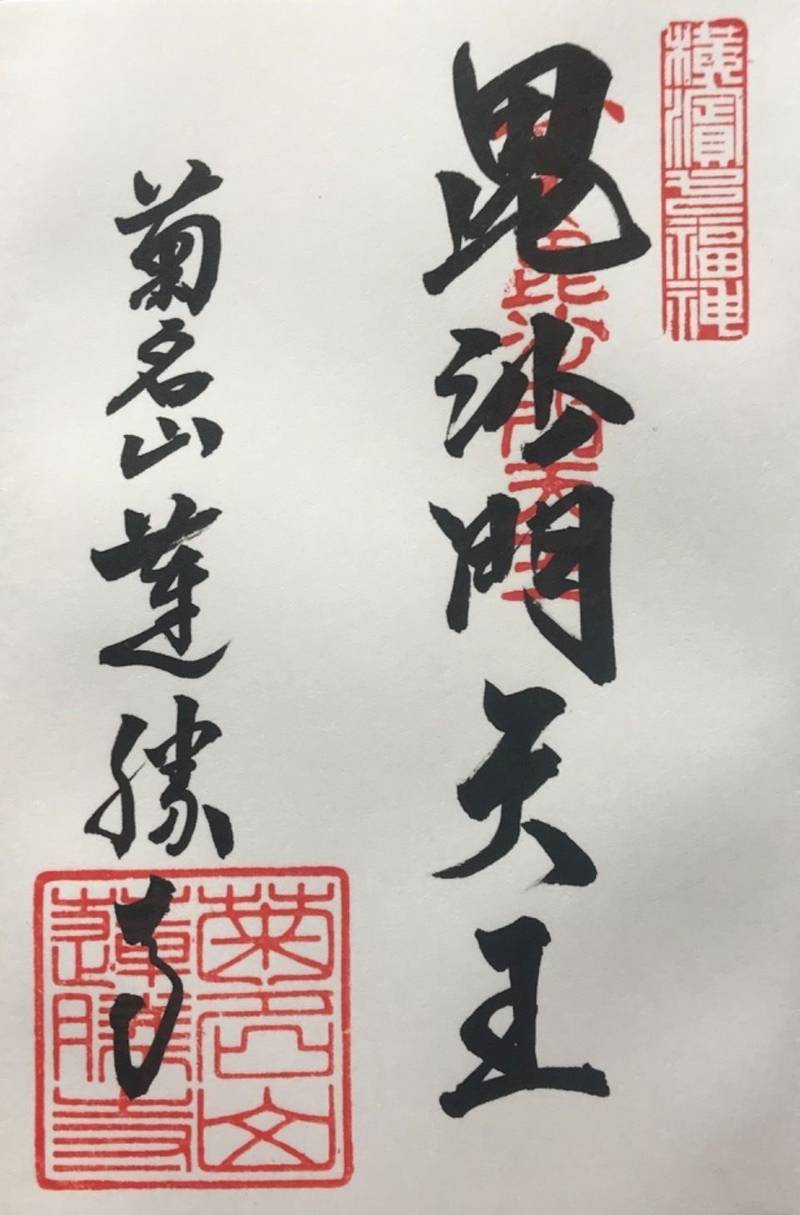 横濱七福神
毘沙門天王
毘沙門天王
菊名山蓮勝寺
菊名山
蓮勝寺